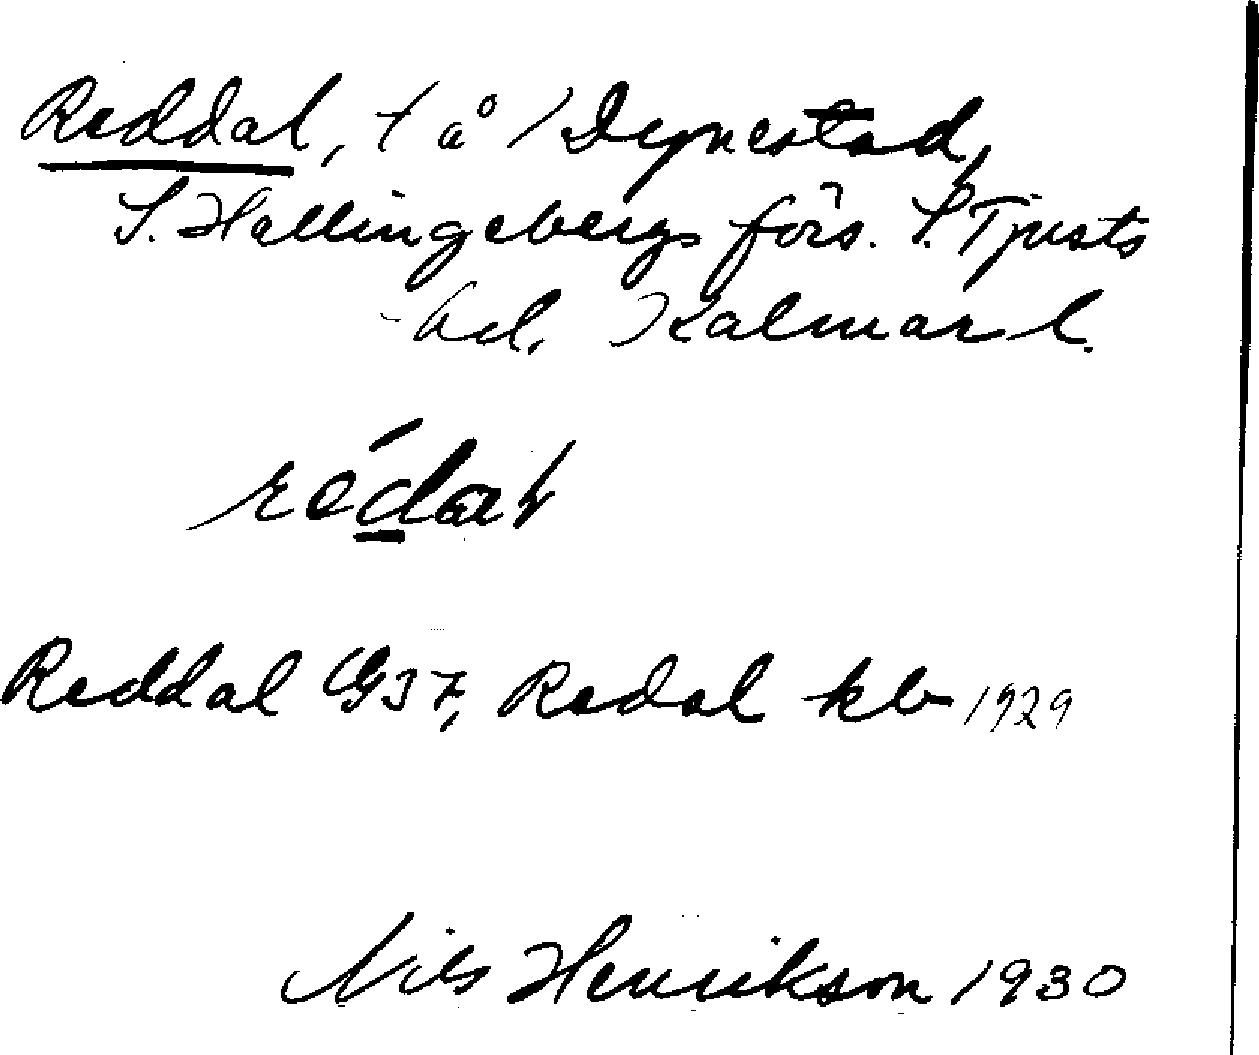 Reddal, t å 1 Dynestad,
S. Hallingebergs förs. S. Tjusts
hd. Kalmar l.
rédal
Reddal GJ7, Redal kb 1929
Nils Henrikson 1930